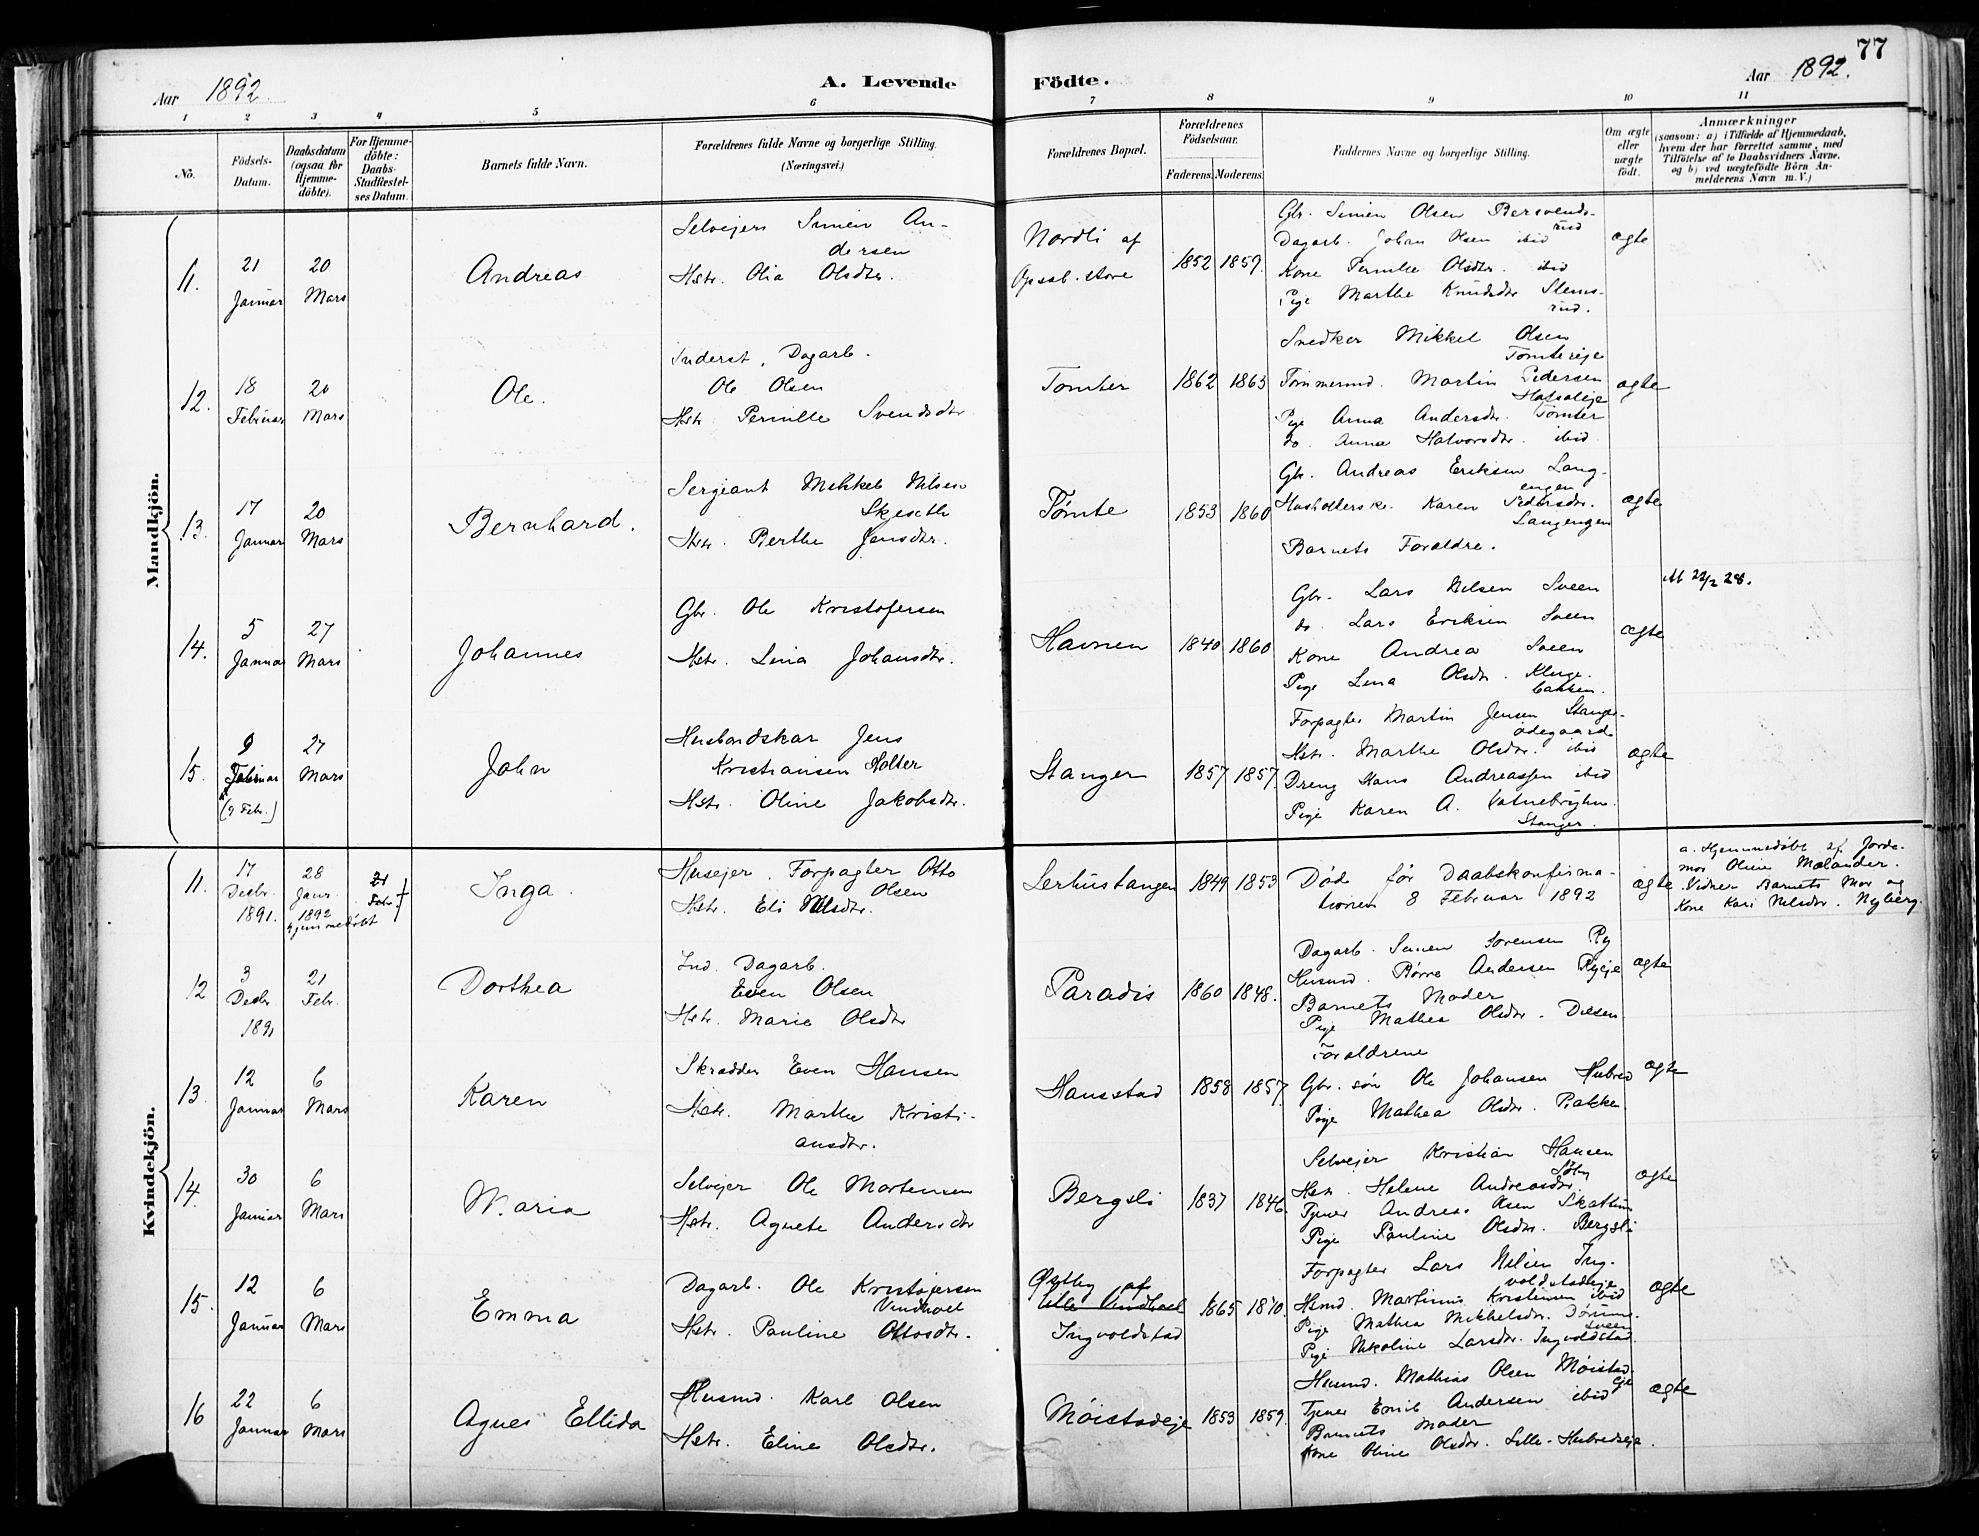 77
Aar 1892.
A. Levende
Födte.
Aar 1892.
1 2 3 4 5 6 7 8 9 10 11
No.
Födsels-
Datum.
Daabsdatum
(ogsaa for
Hjemme-
döbte).
For Hjemme-
döbte:
Daabs-
Stadfæstel-
ses Datum.
Barnets fulde Navn.
Forældrenes fulde Navne og borgerlige Stilling.
(Næringsvei.)
Forældrenes Bopæl.
Forældrenes
Födselsaar.
Faderens. Moderens.
Faddernes Navne og borgerlige Stilling.
Om ægte
eller
uægte
födt.
Anmærkninger
(saasom: a) i Tilfælde af Hjemmedaab,
hvem der har forrettet samme, med
Tilföielse af to Daabsvidners Navne.
og b) ved uægtefödte Börn An-
melderens Navn m. V.)
Mandkjön.
11.
21
Januar
20
Mars
Andreas
Selvejer Simen An-
dersen
Hstr. Olia Olsdtr.
Nordli af
Opsal. store
1852 1859.
Gbr. Simen Olsen Bersvends-
rud
Dagarb. Johan Olsen ibid
Kone Pernille Olsdtr. ibid
Pige Marthe Knudsdtr Stens-
rud.
ægte
12.
18
Februar
20
Mars
Ole.
Inderst, Dagarb.
Ole Olsen
Hstr. Pernille Svendsdtr
Tomter
1862 1863
Snedker Mikkel Olsen
Tomtereje
Tømmermd. Martin Pedersen
Pige Anna Andersdtr. Tomter
do. Anna Halvorsdtr. ibid.
ægte
13.
17
Januar
20
Mars
Bernhard.
Sergiant Mikkel Nilsen
Skjeseth
Hstr. Berthe Jensdtr.
Tømte
1853 1860
Gbr. Andreas Eriksen Lang-
engen
Husholderske Karen Pedersdtr.
Langengen
Barnets Foraldre.
ægte
14.
5
Januar
27
Mars
Johannes
Gbr. Ole Kristofersen
Hstr. Lina Johansdtr.
Havnen
1840 1860
Gbr. Lars Nilsen Sveen
do. Lars Eriksen Sveen
Kone Andrea Sveen
Pige Lena Olsdtr. Kluge-
bakken.
ægte
Att 22/2 28.
15.
9
Februar
(9 Febr.)
27
Mars
John
Husbondskar Jens
Kristiansen Holter
Hstr. Oline Jakobsdtr.
Stanger
1857 1857.
Forpagter Martin Jensen Stanger-
ødegaard
Hstr. Marthe Olsdtr. ibid
Dreng Hans Andreassen ibid
Pige Karen A.
Stanger.
ægte
Kvindekjön.
11.
17
Decbr.
1891.
28
Janr.
1892
hjemmedøbt
21
Febr.
Inga.
Husejer Forpagter Otto
Olsen
Hstr. Eli Nilsdtr.
Lerhustangen
1849 1853
Død før Daabskonfirma-
tionen 8 Februar 1892
ægte
a. Hjemmedøbt af Jorde-
mor Oline Molander.
Vidner Barnets Mor og
Kone Kari Nilsdtr. Nyberg.
12
3
Decbr
1891
21
Febr.
Dorthea
Ind. Dagarb.
Even Olsen
Hstr. Marie Olsdtr
Paradis
1860 1848.
Dagarb. Simen Sorensen Ry
Husmd. Børre Andersen Ryeje
Barnets Moder
Pige Mathea Olsdtr. Diesen
ægte
13.
12
Januar
6
Mars
Karen
Skradder Even Hansen
Hstr. Marthe Kristi-
ansdtr.
Hansstad
1858 1857.
Foraldrene
Gbr. søn Ole Johansen Hubred
Pige Mathea Olsdtr. Bakke
ægte
14.
30
Januar
6
Mars
Maria
Selvejer Ole Mortensen
Hstr. Agnete Andersdtr
Bergsli
1837 1846.
Selvejer Kristian Hansen
Hstr. Helene Andreasdtr.
Tjener Andreas Olsen Skattum
Pige Pauline Olsdtr. Bergsli
ægte
15.
12
Januar
6
Mars
Emma
Dagarb. Ole Kristofersen
Vindhoel
Hstr. Pauline Ottosdtr.
Østby af
Lille Vindhoel
Ingvoldstad
1865 1870.
Forpagter Lars Nilsen Ing-
voldstadeje
Hsmd. Martinus Kristiansen ibid
Pige Mathea Mikkelsdtr.
sveen
Pige Nikoline Larsdtr. Ingvoldstad
ægte
16
22
Januar
6
Mars
Agnes Ellida
Husmd. Karl Olsen
Hstr. Eline Olsdtr.
Møistadeje
1853 1859.
Husmd. Mathias Olsen Møistad-
eje
Tjener Emil Andersen ibid
Barnets Moder
Kone Oline Olsdtr. Lille-Hubredeje.
ægte